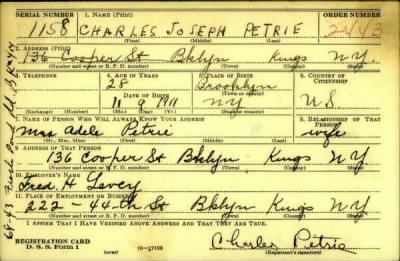 SERIAL NUMBER 1. NAME (Print) ORDER NUMBER
1158 CHARLES JOSEPH PETRIE 2443
(First) (Middle) (Last)
2. ADDRESS (Print)
136 Cooper St Bklyn Kings N.Y.
(Number and street or R. F. D. number) (Town) (County) (State)
3. TELEPHONE 4. AGE IN YEARS 5. PLACE OF BIRTH 6. COUNTRY OF CITIZENSHIP
28 Brooklyn
DATE OF BIRTH (Town or county)
11 9 1911 NY U.S.
(Exchange) (Number) (Mo.) (Day) (Yr.) (State or country)
7. NAME OF PERSON WHO WILL ALWAYS KNOW YOUR ADDRESS 8. RELATIONSHIP OF THAT PERSON
Mrs Adele Petrie wife
(Mr., Mrs., Miss) (First) (Middle) (Last)
9. ADDRESS OF THAT PERSON
136 Cooper St Bklyn Kings N.Y
(Number and street or R. F. D. number) (Town) (County) (State)
10. EMPLOYER'S NAME
Fred. H Levey
11. PLACE OF EMPLOYMENT OR BUSINESS
222 - 44th St Bklyn Kings N.Y
(Number and street or R. F. D. number) (Town) (County) (State)
I AFFIRM THAT I HAVE VERIFIED ABOVE ANSWERS AND THAT THEY ARE TRUE.
REGISTRATION CARD
D. S. S. Form 1 (over) 16-17105 Charles Petrie
(Registrant's signature)
68-43